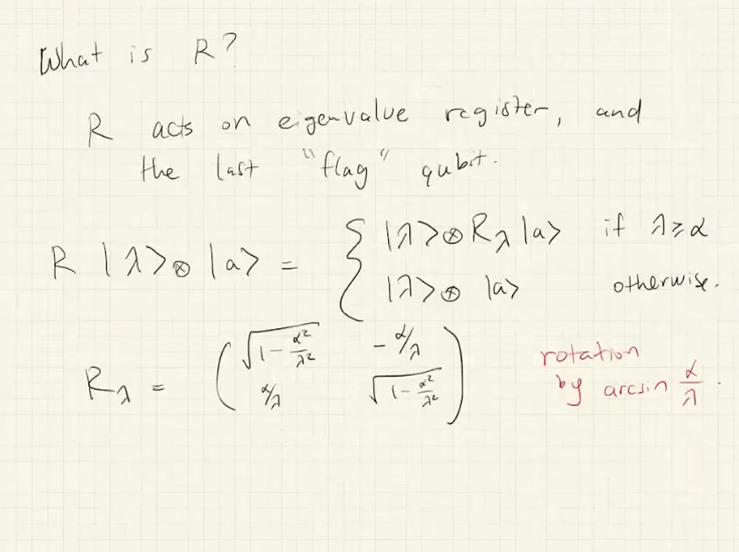 What is R?
R acts on eigenvalue register, and
the last "flag" qubit.
R |λ>⊗ |a> = { |λ>⊗ R_λ |a> if λ≥α
|λ>⊗ |a> otherwise.
R_λ = ( √(1-α²/λ²) -α/λ
α/λ √(1-α²/λ²) )
rotation
by arcsin α/λ.